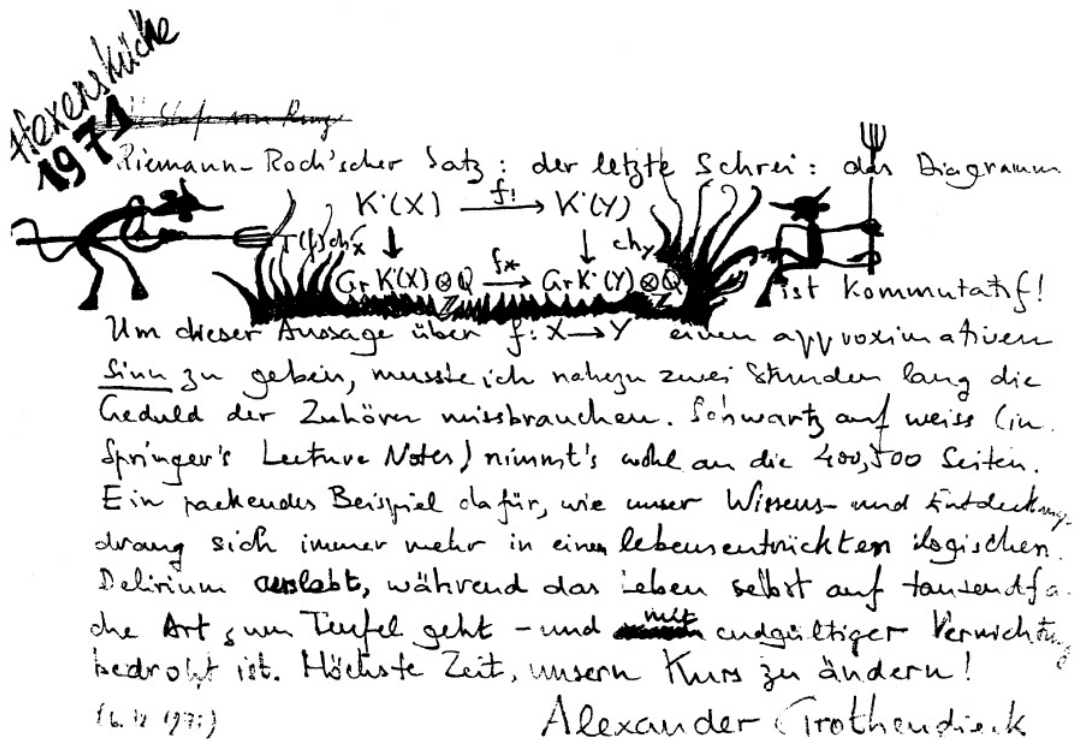 Hexenküche
1971
Riemann-Roch'scher Satz: der letzte Schrei: das Diagramm
K˙(X) f! → K˙(Y)
T(f)chₓ ↓ ↓ ch_Y
Gr K˙(X) ⊗_Z Q f* → Gr K˙(Y) ⊗_Z Q
ist kommutatif!
Um dieser Aussage über f: X → Y einen approximativen
Sinn zu geben, musste ich nahezu zwei Stunden lang die
Geduld der Zuhörer missbrauchen. Schwartz auf weiss (in
Springer's Lecture Notes) nimmt's wohl an die 400,500 Seiten.
Ein packendes Beispiel dafür, wie unser Wissens- und Entdeckungs-
drang sich immer mehr in einem lebensentrückten logischen
Delirium auslebt, während das Leben selbst auf tausendfa-
che Art zum Teufel geht - und mit endgültiger Vernichtung
bedroht ist. Höchste Zeit, unsern Kurs zu ändern!
Alexander Grothendieck